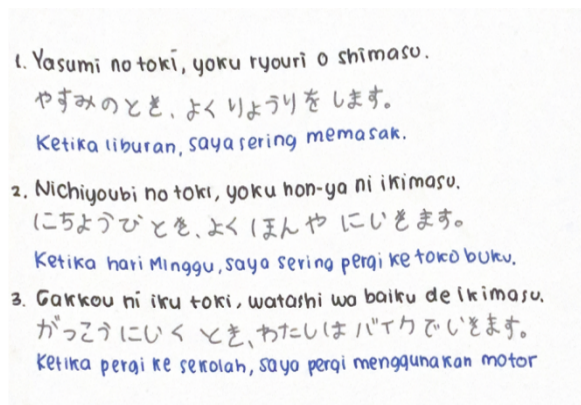 1. Yasumi no toki, yoku ryouri o shimasu.
やすみのとき、よくりょうりをします。
Ketika liburan, saya sering memasak.
2. Nichiyoubi no toki, yoku hon-ya ni ikimasu.
にちようびとき、よくほんやにいきます。
Ketika hari Minggu, saya sering pergi ke toko buku.
3. Gakkou ni iku toki, watashi wa baiku de ikimasu.
がっこうにいくとき、わたしはバイクでいきます。
Ketika pergi ke sekolah, saya pergi menggunakan motor